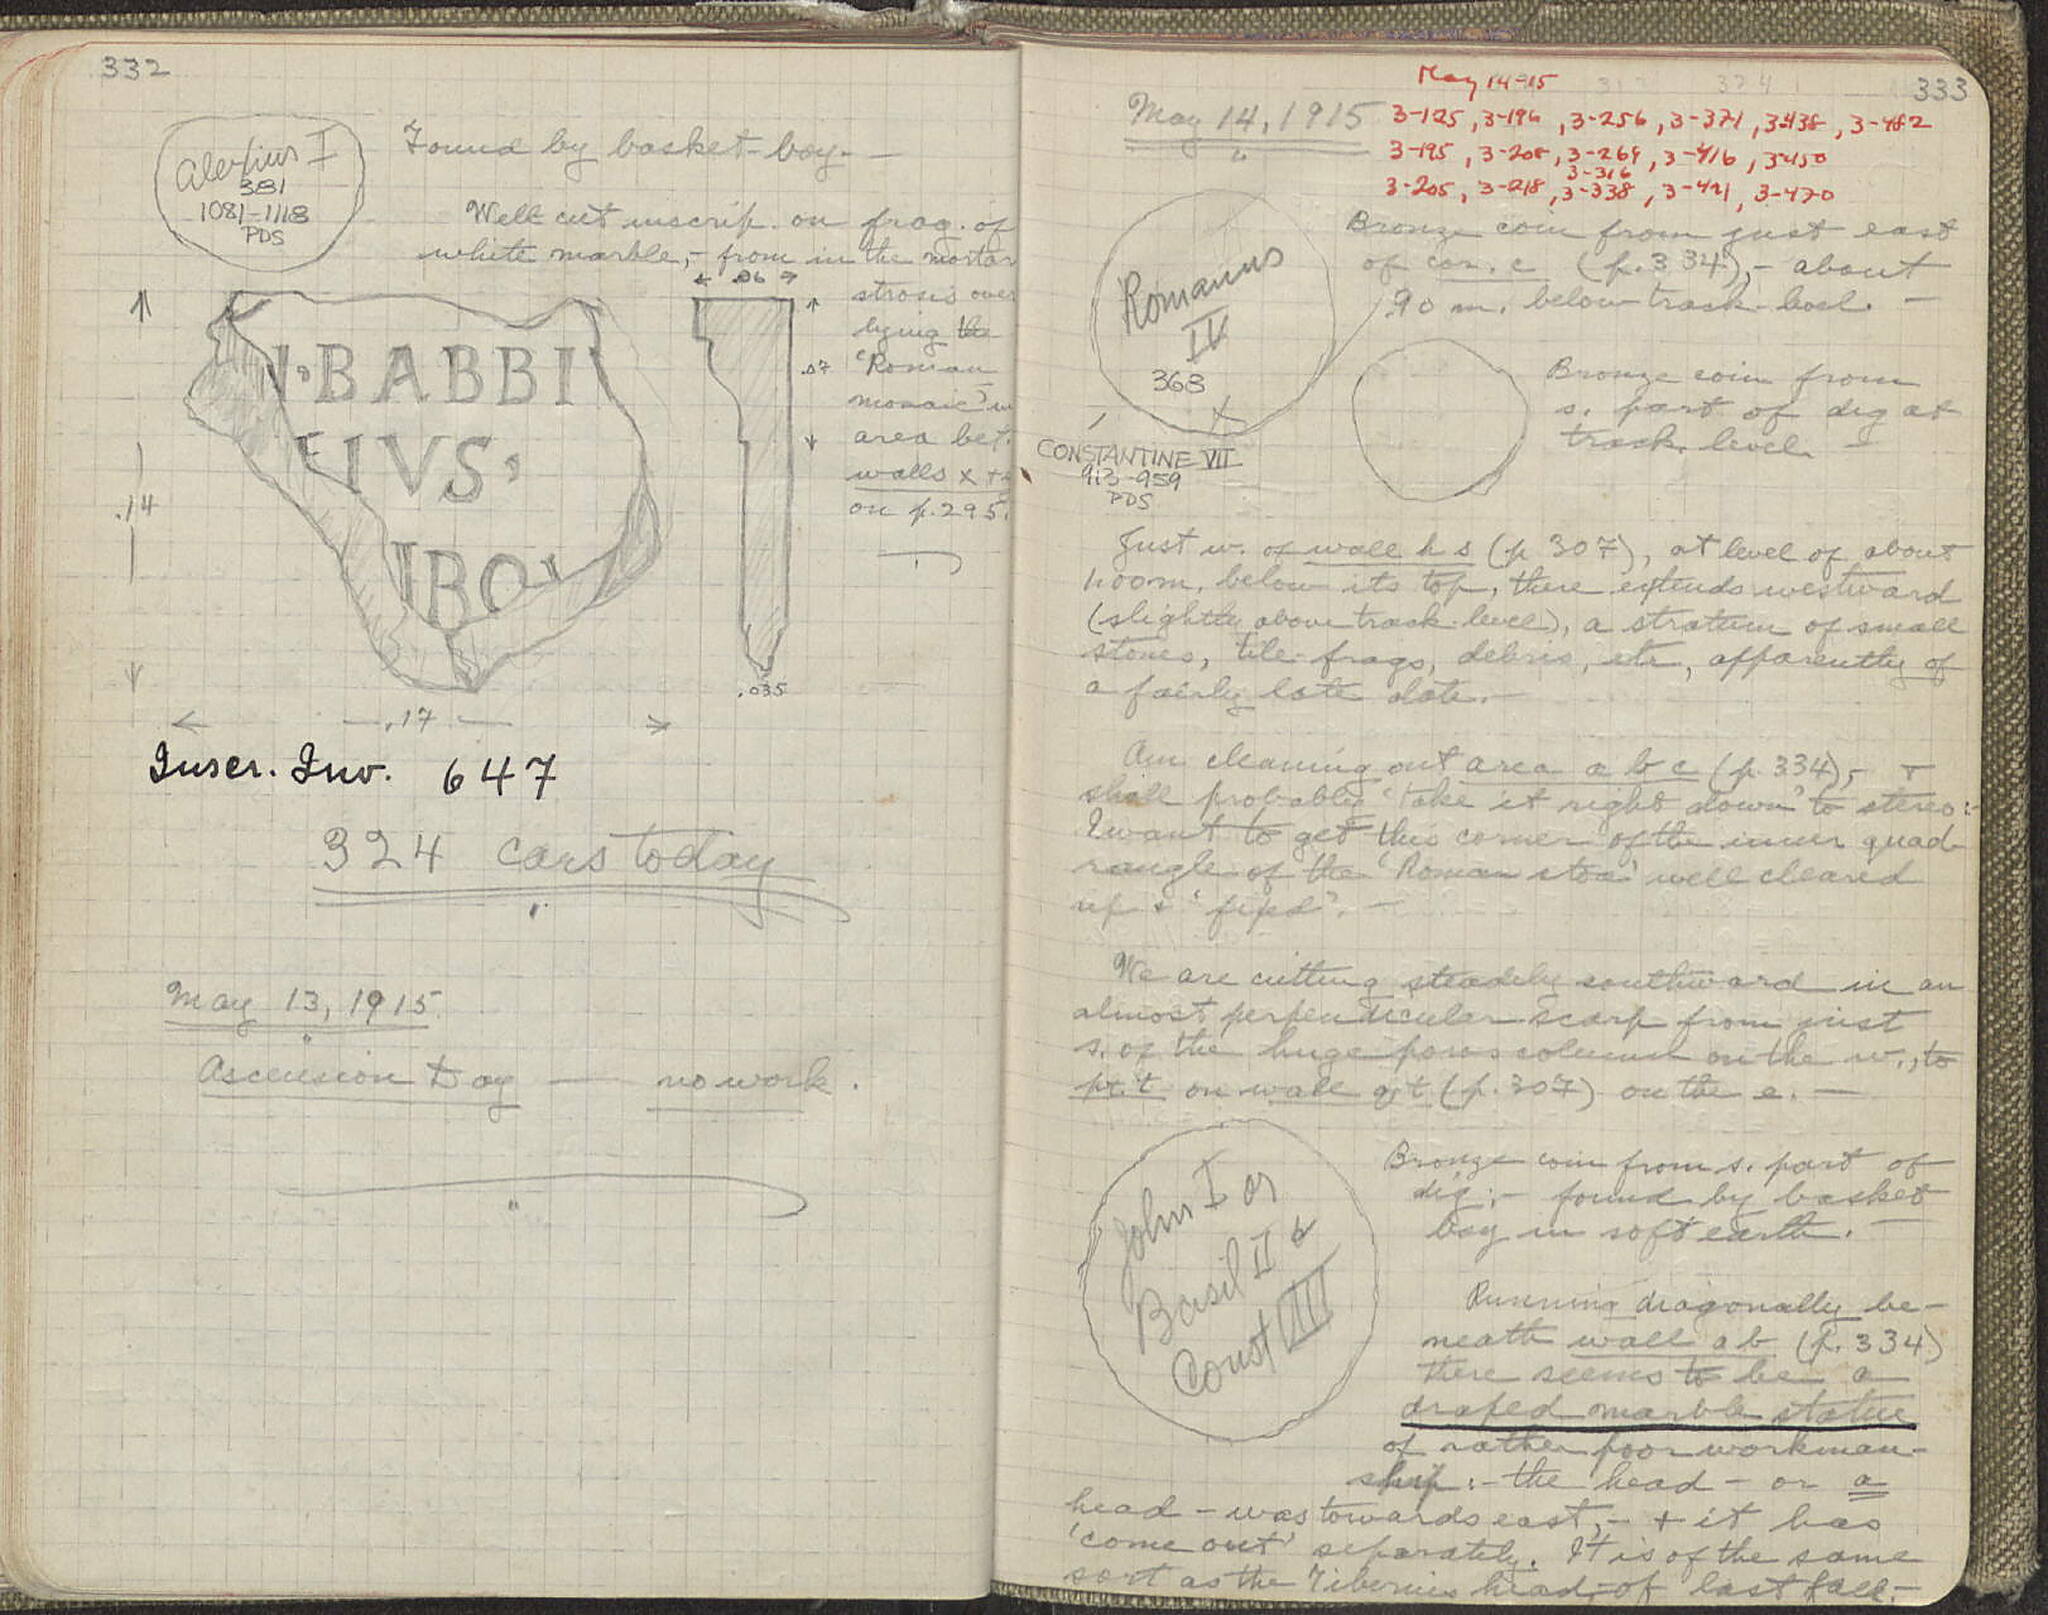 332
Alexius I
381
1081-1118
PDS
Found by basket-boy. —
Well cut inscrip. on frag. of
white marble, - from in the mortar
strosis over
lying the
'Roman
mosaic' in
area bet.
walls x +
on p. 295.
.06
.07
.035
.14
.17
I·BABBI
IVS,
IBO
Inscr. Inv. 647
324 cars today
May 13, 1915
Ascension Day — no work.
333
May 14-15
May 14, 1915
3-125, 3-196, 3-256, 3-371, 3-438, 3-482
3-195, 3-208, 3-264, 3-416, 3-450
3-316
3-205, 3-218, 3-338, 3-421, 3-470
Romanus
IV
368
CONSTANTINE VII
913-959
PDS
Bronze coin from just east
of cor. c (p. 334), - about
.90 m. below track-level. —
Bronze coin from
s. part of dig at
track level. —
Just w. of wall h s (p 307), at level of about
1.00 m. below its top, there extends westward
(slightly above track-level), a stratum of small
stones, tile-frags, debris, etc, apparently of
a fairly late date. —
Am cleaning out area a b c (p. 334), - +
shall probably 'take it right down' to stereo: -
I want to get this corner of the inner quad-
rangle of the 'Roman stoa' well cleared
up + 'fixed'. —
We are cutting steadily southward in an
almost perpendicular scarp from just
s. of the huge poros column on the w., to
pt. t on wall g t (p. 307) on the e. —
John I or
Basil II &
Const VIII
Bronze coin from s. part of
dig: - found by basket
boy in soft earth. —
Running diagonally be-
neath wall a b (p. 334)
there seems to be a
draped marble statue
of rather poor workman-
ship: - the head - or a
head - was towards east, - + it has
'come out' separately. It is of the same
sort as the Tiberius head, of last fall. -